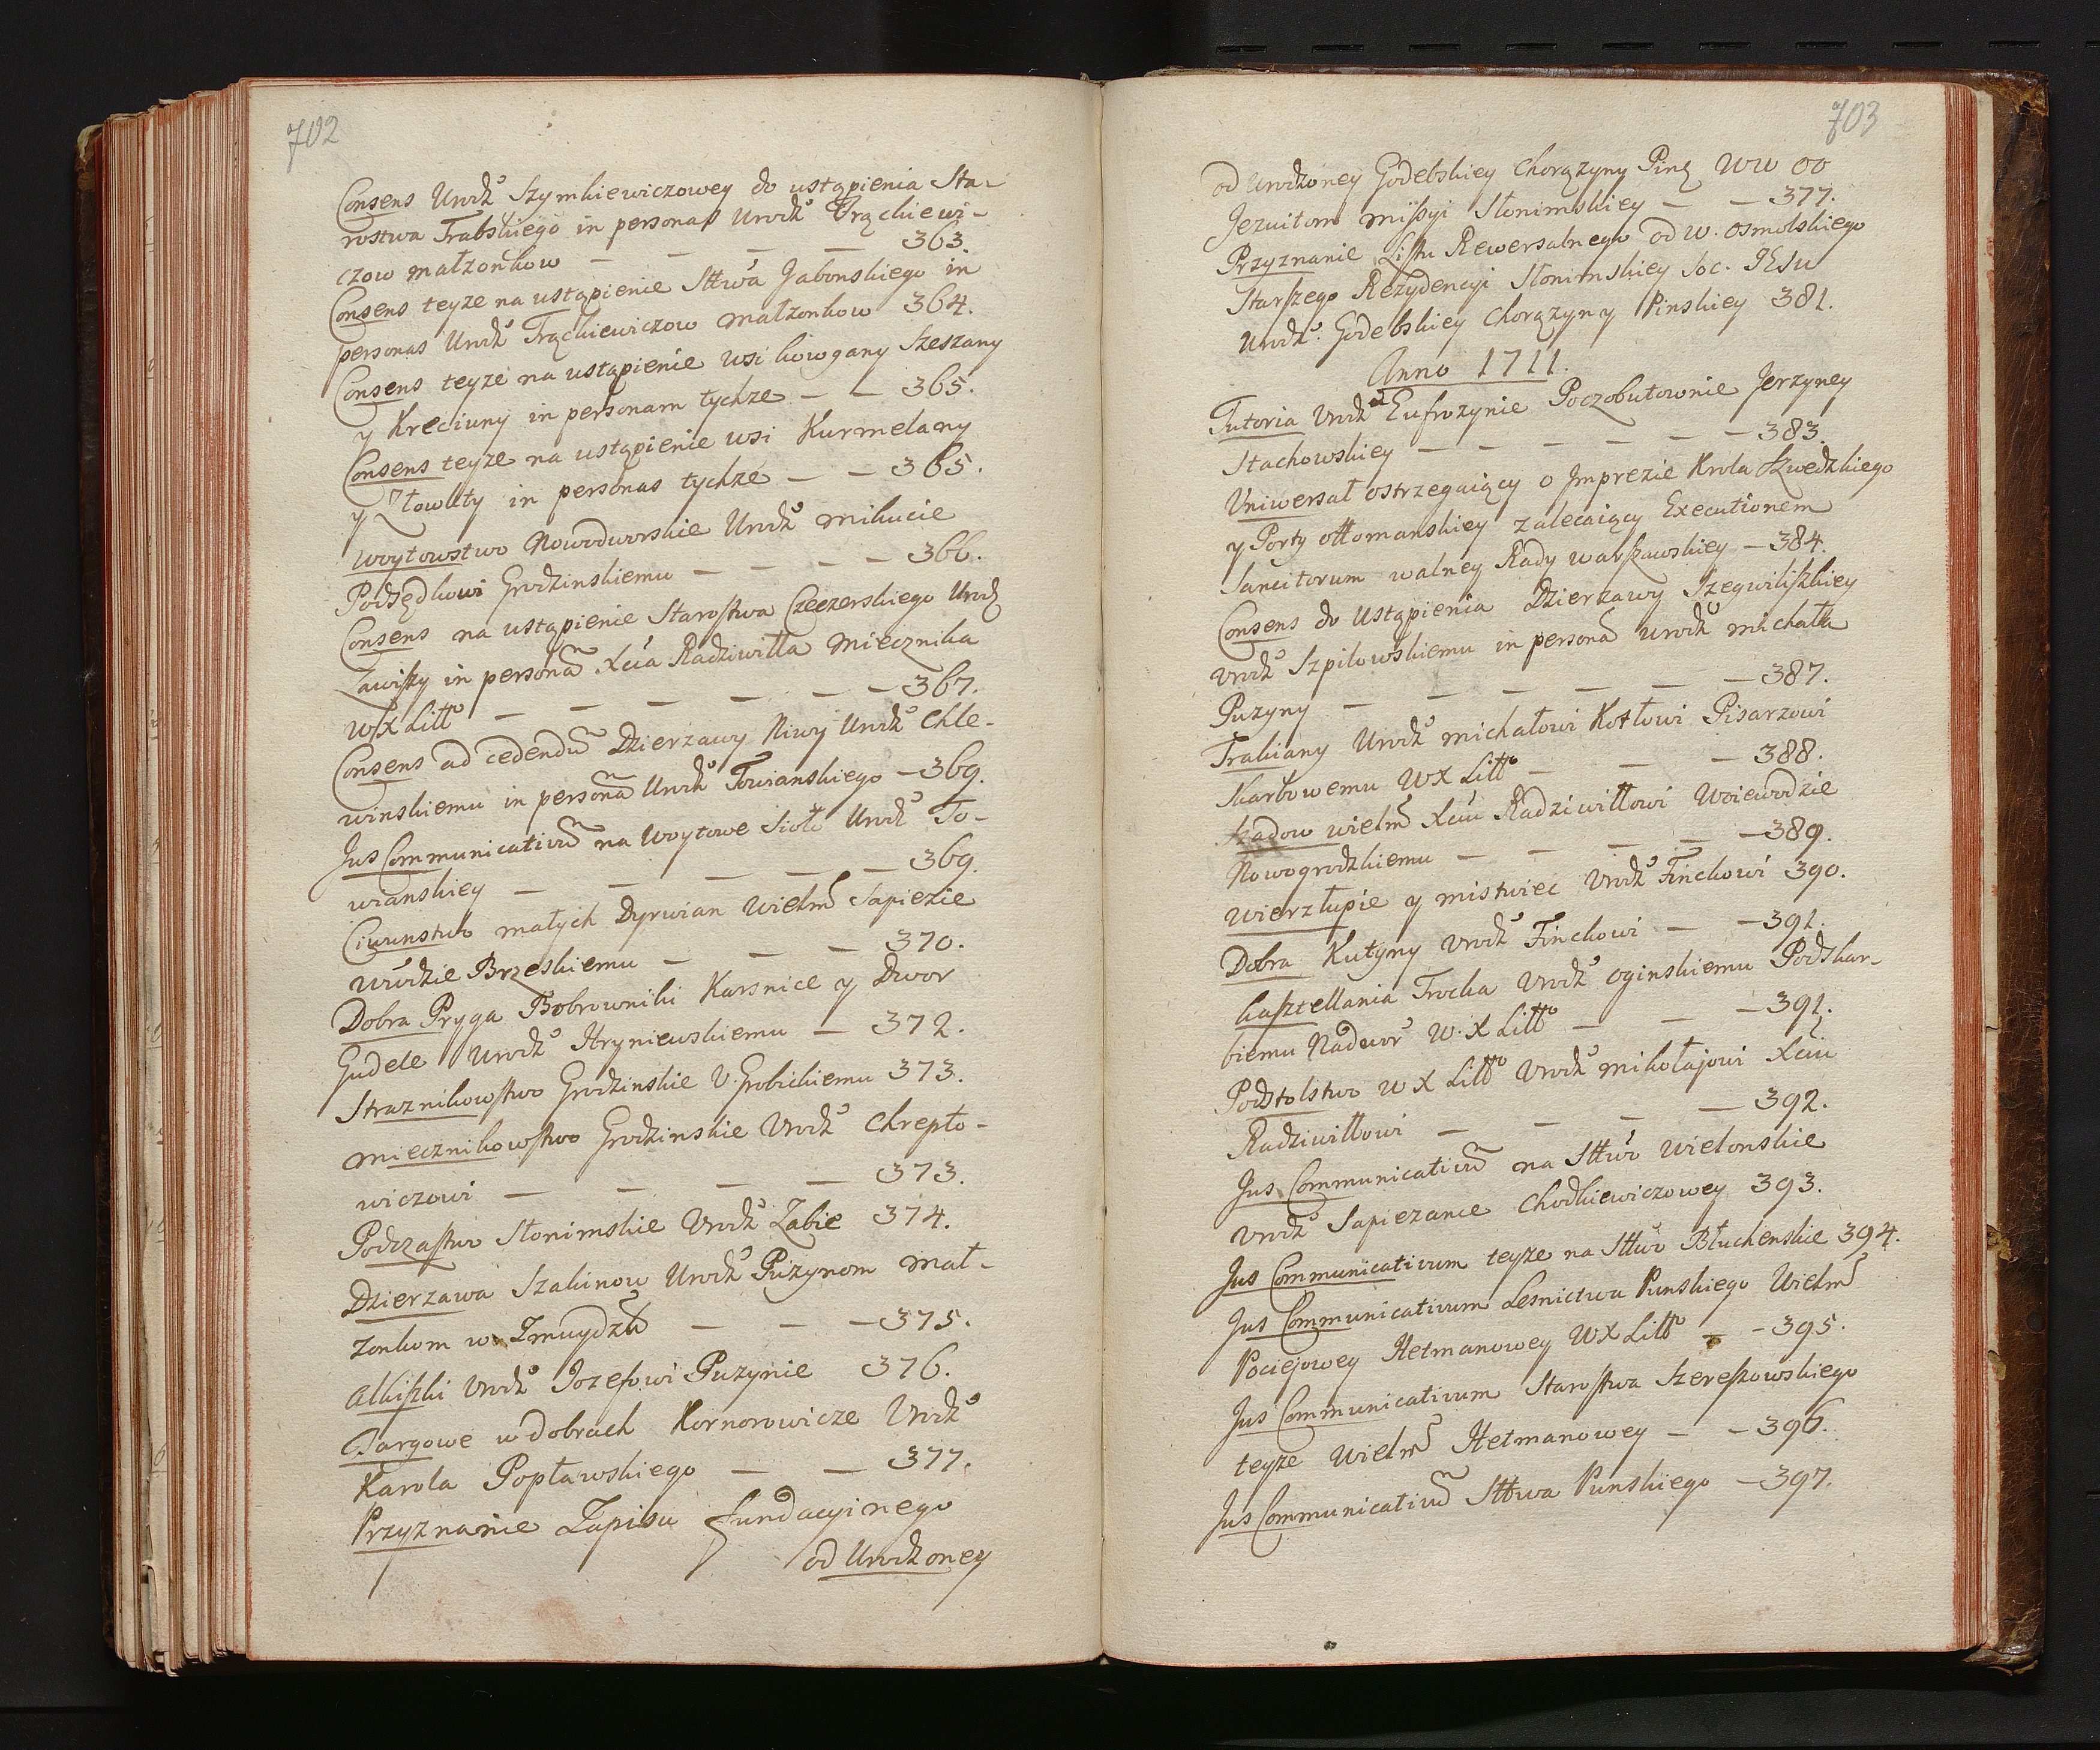 702
Consens Urodź Szymkiewiczowey do ustąpienia Sta-
rostwa Trabskiego in personas Urodź Trąckiewi-
czow małzonkow — — — 363.
Consens teyze na ustąpienie Sttwa Jabonskiego in
personas Urodź Trąckiewiczow małzonkow 364.
Consens teyze na ustąpienie wsi kowgany Szeszany
y Kreciuny in personam tychze — — 365.
Consens teyze na ustąpienie wsi Kurmelany
y in personas tychze — — 365.
Woytowstwo Nowodworskie Urodź mikucie
Podsędkowi Grodzinskiemu — — — — 366.
Consens na ustąpienie Starostwa Czeczerskiego Urodz
Zawiszy in persona Xcia Radziwiłła Miecznika
WX Litto — — — — — 367.
Consens ad cedendu Dzierzawy Niwy Urodź Chle-
winskiemu in persona Urodź Towianskiego — 369.
Jus Communicativu na Woytowe Sioło Urodź To-
wianskiey — — — — — 369.
Ciwunstwo małych Dyrwian Wielm Sapiezie
Wwdzie Brzeskiemu — — — 370.
Dobra Pryga Bobrowniki Karsnice y Dwor
Gudele Urodź Hryniewskiemu — 372.
Straznikowstwo Grodzinskie U. Grobickiemu 373.
Miecznikowstwo Grodzinskie Urodź Chrepto-
wiczowi — — — — 373.
Podczastwo Słonimskie Urodź Zabie 374.
Dzierzawa Szakinow Urodź Puzynom mał-
zonkom w Zmuydzi — — — 375.
Alkiszki Urodź Jozefowi Puzynie 376.
Targowe w dobrach Kornorowicze Urodź
Karola Popławskiego — — 377.
Przyznanie Zapisu fundacyinego
od Urodzoney
703
od Urodzoney Godebskiey Chorązyny Ping WW OO
Jezuitom missyi Słonimskiey — — 377.
Przyznanie Listu Rewersalnego od W. Osmolskiego
Starszego Rezydencyi Słonimskiey Soc. JESu
Urodź. Godebskiey Chorązyny Pinskiey 381.
Anno 1711.
Tutoria Urodź Eufrozynie Poczobutownie Jerzyney
Stachowskiey — — — — — 383.
Uniwersał ostrzegaiący o Imprezie Krola Szwedzkiego
y Porty ottomanskiey zalecaiący Executionem
Sancitorum walney Rady warszawskiey — 384.
Consens do Ustąpienia Dzierzawy Szegwiliszkiey
Urodź Szpilowskiemu in persona Urodź Michała
Puzyny — — — — — — 387.
Trakiany Urodź michałowi Kotłowi Pisarzowi
Skarbowemu WX Litto — — — 388.
Szadow wielm Xciu Radziwiłłowi Woiewodzie
Nowogrodzkiemu — — — — — 389.
Wierzłupie y mistwiec Urodź Finckowi 390.
Dobra Kutyny Urodź Finckowi — — 391.
kasztellania Trocka Urodź Oginskiemu Podskar-
biemu Nadwor W. X Litto — — — 391.
Podstolstwo W X Litto Urodź mikołajowi Xciu
Radziwiłłowi — — — — 392.
Jus Communicativu na Sttwo Wielonskie
Urodź Sapiezance Chodkiewiczowey 393.
Jus Communicativum teyze na Sttwo Błuchenskie 394.
Jus Communicativum Lesnictwa Punskiego Wielm
Pociejowey Hetmanowey WX Litto — — 395.
Jus Communicativum Starostwa Szereszowskiego
teyze Wielm Hetmanowey — — 396.
Jus Communicativu Sttwa Punskiego — 397.